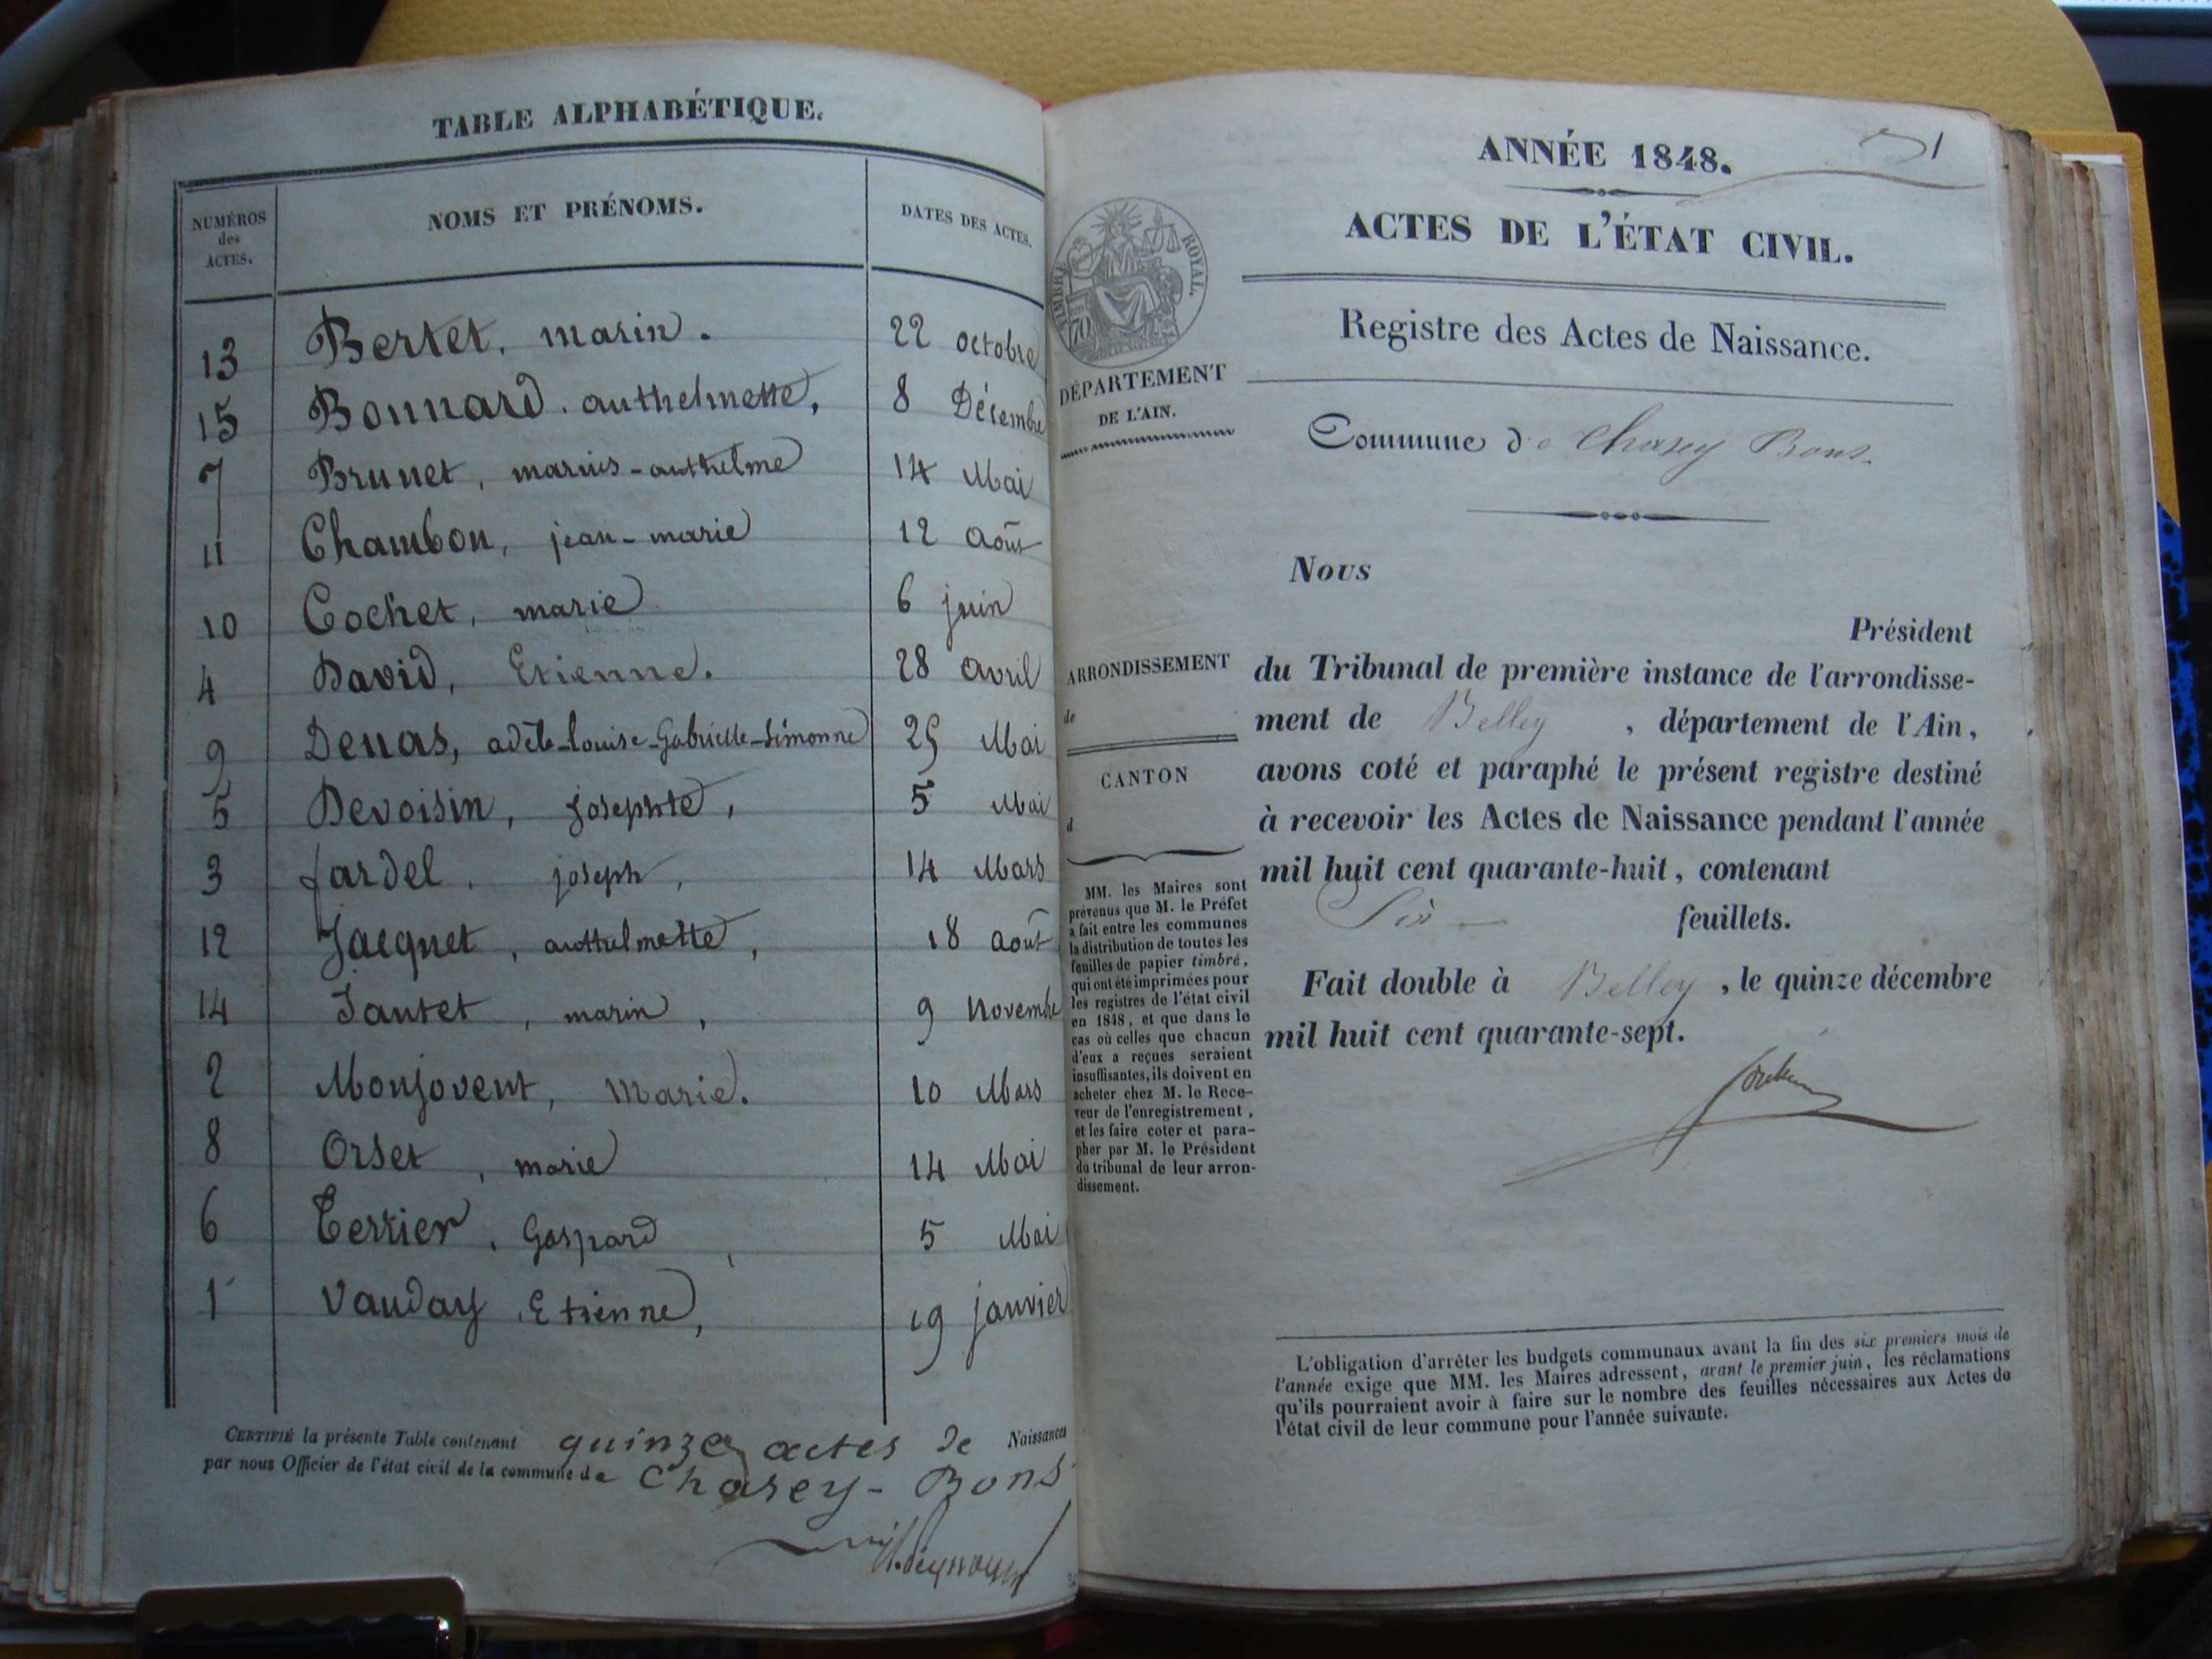 TABLE ALPHABÉTIQUE.
NUMÉROS
des
ACTES.
NOMS ET PRÉNOMS.
DATES DES ACTES.
13 Bertet, marin. 22 octobre
15 Bonnard. anthelmette, 8 Décembre
7 Brunet, marius-anthelme 14 Mai
11 Chambon, jean-marie 12 août
10 Cochet, marie 6 juin
4 David, Etienne. 28 avril
9 Denas, adèle-louise-Gabrielle-Simonne 25 Mai
5 Devoisin, josephte, 5 Mai
3 Jardel, joseph, 14 Mars
12 Jacquet, anthelmette, 18 août
14 Jantet, marin, 9 Novembre
2 Monjovent, Marie. 10 Mars
8 Orset, marie 14 Mai
6 Terrier, Gaspard, 5 Mai
1 Vauday, Etienne, 19 janvier
CERTIFIÉ la présente Table contenant quinze actes de Naissances
par nous Officier de l'état civil de la commune de Chasey-Bons
1
ANNÉE 1848.
ACTES DE L'ÉTAT CIVIL.
Registre des Actes de Naissance.
TIMBRE ROYAL.
70
DÉPARTEMENT
DE L'AIN.
Commune de Chasey Bons.
Nous
Président
du Tribunal de première instance de l'arrondisse-
ment de Belley, département de l'Ain,
avons coté et paraphé le présent registre destiné
à recevoir les Actes de Naissance pendant l'année
mil huit cent quarante-huit, contenant
Six feuillets.
Fait double à Belley, le quinze décembre
mil huit cent quarante-sept.
ARRONDISSEMENT
de
CANTON
d
MM. les Maires sont
prévenus que M. le Préfet
a fait entre les communes
la distribution de toutes les
feuilles de papier timbré,
qui ont été imprimées pour
les registres de l'état civil
en 1848, et que dans le
cas où celles que chacun
d'eux a reçues seraient
insuffisantes, ils doivent en
acheter chez M. le Rece-
veur de l'enregistrement,
et les faire coter et para-
pher par M. le Président
du tribunal de leur arron-
dissement.
L'obligation d'arrêter les budgets communaux avant la fin des six premiers mois de
l'année exige que MM. les Maires adressent, avant le premier juin, les réclamations
qu'ils pourraient avoir à faire sur le nombre des feuilles nécessaires aux Actes de
l'état civil de leur commune pour l'année suivante.